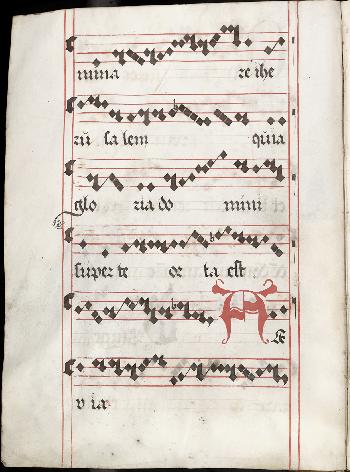 mina re ihe
rū sa lem quia
glo ria do mini
super te or ta est
A
v ia